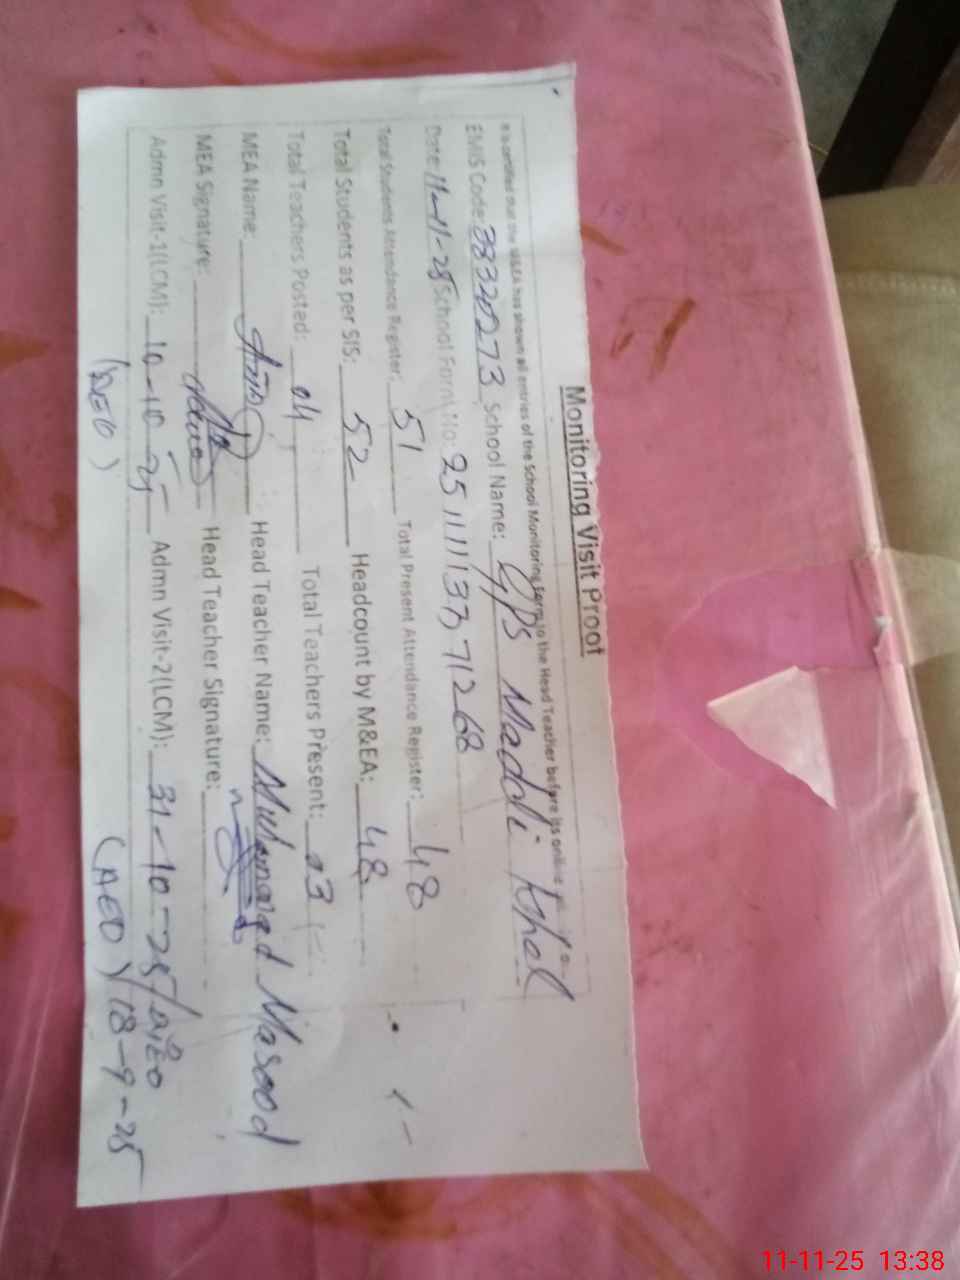 Monitoring Visit Proof
It is certified that the M&EA has shown all entries of the School Monitoring Form to the Head Teacher before its online
EMIS Code: 38320273 School Name: GPS Maddi Khel
Date: 11-11-25 School Form No: 25111137371268
Total Students Attendance Register: 51 Total Present Attendance Register: 48
Total Students as per SIS: 52 Headcount by M&EA: 48
Total Teachers Posted: 04 Total Teachers Present: 03
MEA Name: Head Teacher Name: Muhammad Masood
MEA Signature: Head Teacher Signature:
Admn Visit-1(LCM): 10-10-25 Admn Visit-2(LCM): 31-10-25/
(DEO) (AEO) 18-9-25
11-11-25 13:38